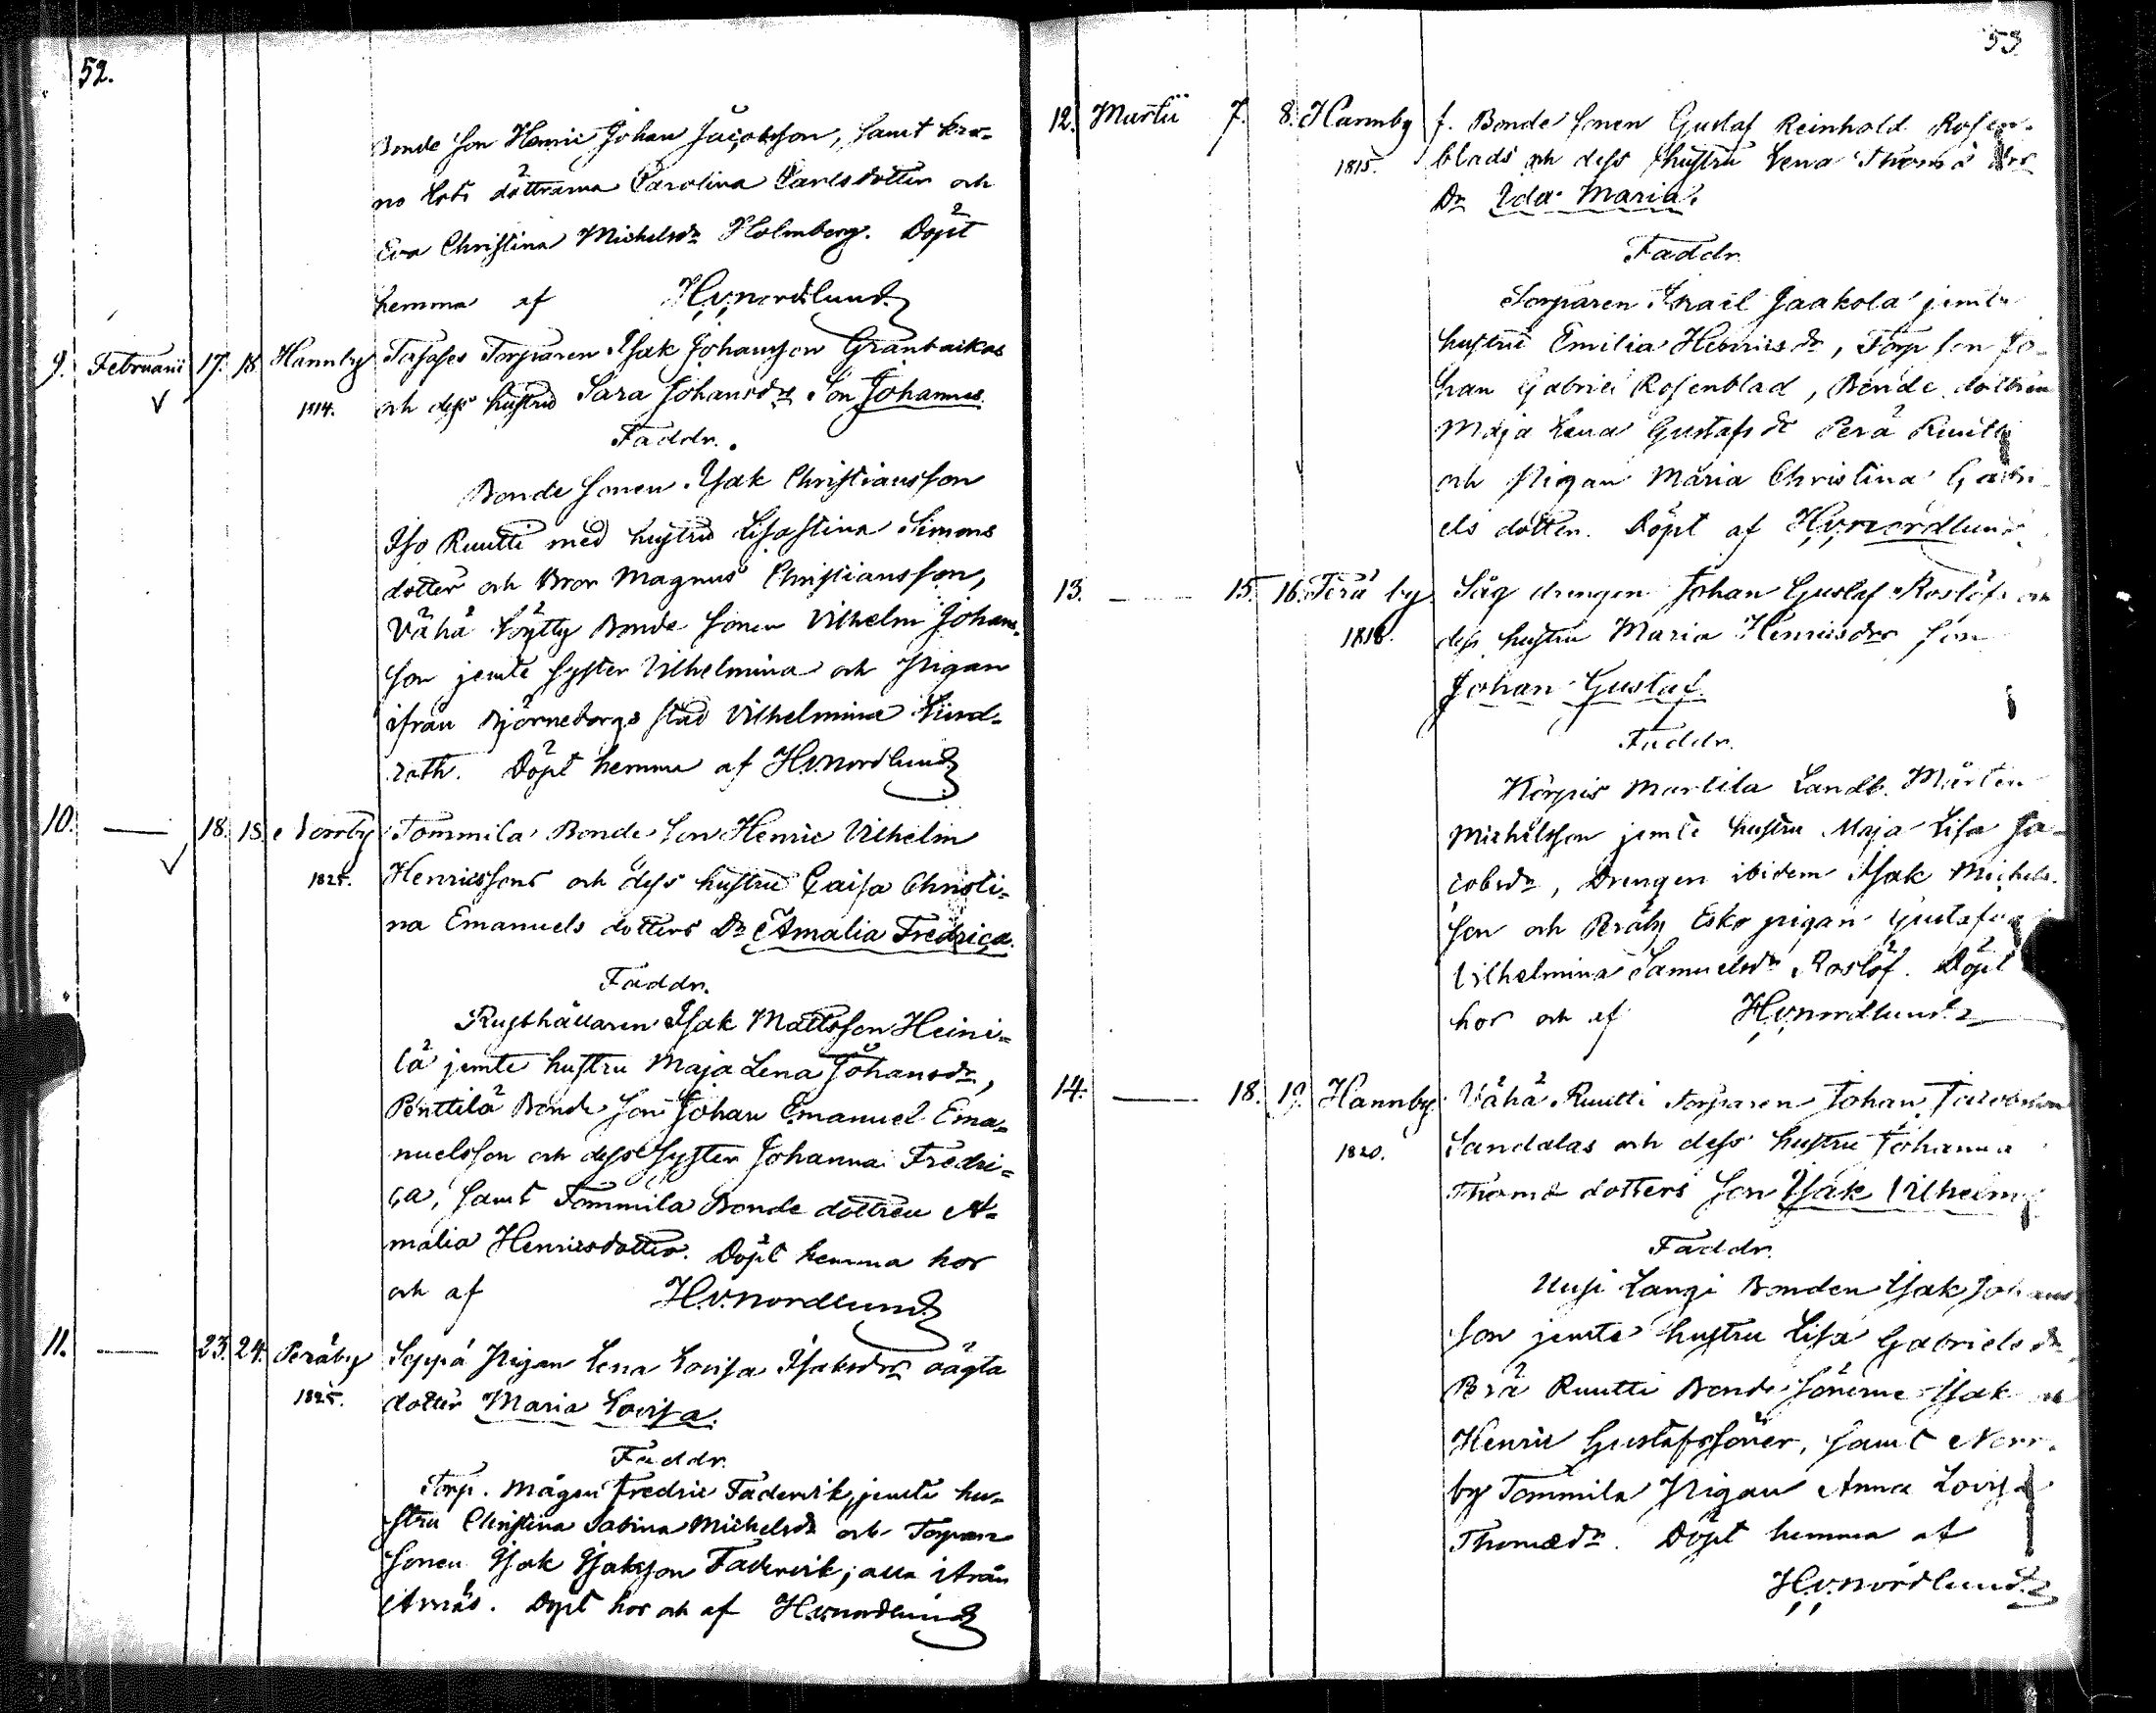 52.
Bonde son Henric Johan Jacobsson, samt
no Lots döttrarna Carolina Carlsdotter och
Eva Christina Michelsdr Holmberg. Döpt
hemma af H.v.nordlund
9. Februarii 17. 18. Hannby Torparen Isak Johansson Granbackas
1814. och dess hustru Sara Johansdrs Son Johannes.
Faddr.
Bonde sonen Isak Christiansson
Iso Ruutti med hustru Lisastina Simons
dotter och Bror Magnus Christiansson,
Vähä Löytty Bonde sonen Vilhelm Johans-
son jemte syster Vilhelmina och pigan
ifrån Björneborgs stad Vilhelmina Lind-
roth. Döpt hemma af H.v.nordlund
10. — 18. 18. Norrby Tommila Bonde Son Henric Vilhelm
1825. Henricssons och dess hustru Caisa Christi=
na Emanuels dotters Dr Amalia Fredrica.
Faddr.
Rusthållaren Isak Mattsson Heini=
lä jemte hustru Maja Lena Johansdr,
Penttilä Bonde son Johan Emanuel Ema=
nuelsson och dess syster Johanna Fredri=
ca, samt Tommila Bonde dottren A=
malia Henricsdotter. Döpt hemma hos
och af H.v.nordlund
11. — 23. 24. Peräby Seppä Pigan Lena Lovisa Isaksdrs oägta
1825. dotter Maria Lovisa.
Faddr.
Torp. Mågen Fredric Federvik, jemte hu-
stru Christina Sabina Michelsdr och Torpare
sonen Isak Isaksson Federvik, alla ifrån
Arnäs. Döpt hos och af H.v.nordlund
53
12. Martii 7. 8. Hannby f. Bonde sonen Gustaf Reinhold Rosen-
1815. blads och dess hustru Lena Thomæ drs
Dr Ida Maria.
Faddr.
Torparen Israil Jaakola jemte
hustru Emilia Henricsdr, Torp son Jo-
han Gabriel Rosenblad, Bonde dottren
Maja Lena Gustafsdr Perä Ruutti
och Pigan Maria Christina Gabri-
els dotter. Döpt af H.v.nordlund
13. — 15. 16. Perä by Såg drengen Johan Gustaf Roslöfs och
1818. dess hustru Maria Henricsdrs son
Johan Gustaf.
Faddr.
Körpis Martila Landb. Mårten
Michelsson jemte hustru Maja Lisa Ja-
cobsdr, Drengen ibidem Isak Michels-
son och Peräby Esko pigan Gustafva
Vilhelmina Samuelsdr Roslöf. Döpt
hos och af H.v.nordlund
14. — 18. 19. Hannby Vähä Ruutti Torparen Johan Jacobsson
1820. Sandalas och dess hustru Johanna
Thomæ dotters Son Isak Vilhelm
Faddr.
Uusi Langi Bonden Isak Johans-
son jemte hustru Lisa Gabrielsdr,
Perä Ruutti Bonde sönerne Isak och
Henric Gustafssöner, samt Norr-
by Tommila Pigan Anna Lovisa
Thomædr. Döpt hemma af
H.v.nordlund